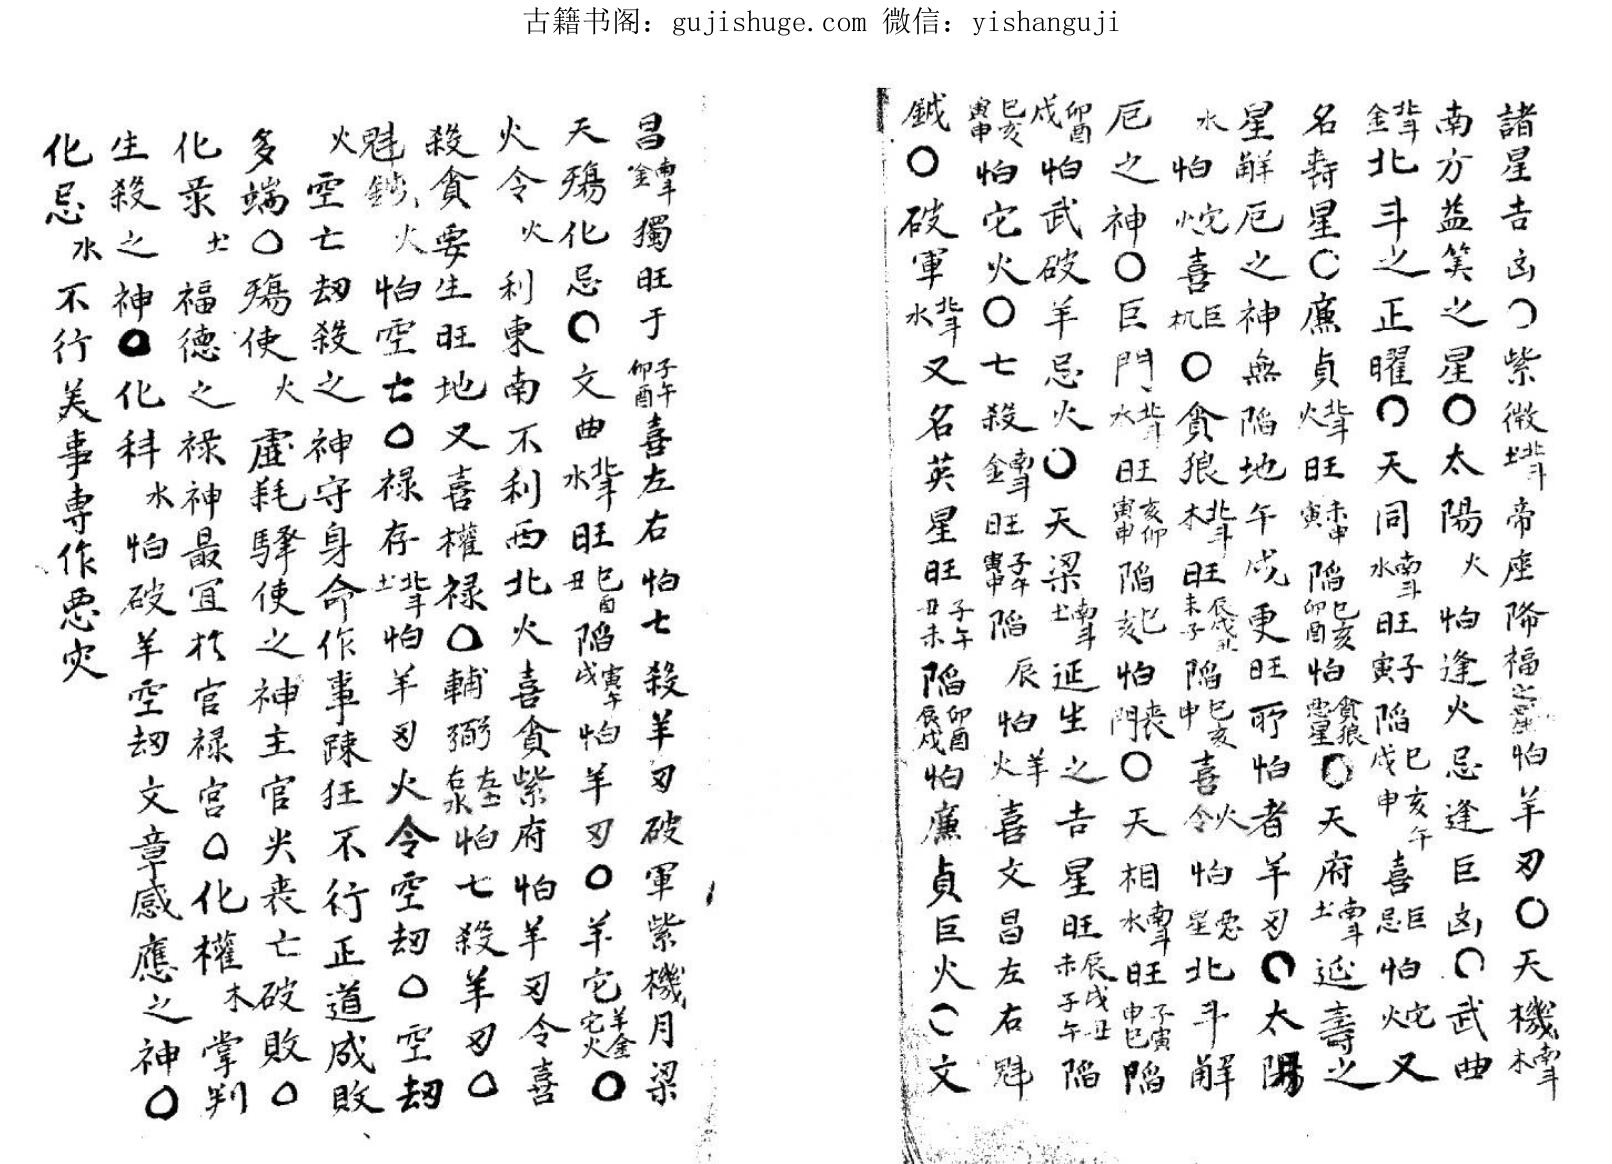 古籍书阁：gujishuge.com 微信：yishanguji
諸星吉凶〇紫微北斗土帝座降福之星怕羊刃〇天機南斗木
南方益筭之星〇太陽火怕逢火忌逢巨凶〇武曲
北斗金北斗之正曜〇天同南斗水旺子寅陷巳亥午戌申喜巨忌怕火陀又
名壽星〇廉貞北斗火旺未申寅陷巳亥卯酉怕貪狼惡星〇天府南斗土延壽之
星解厄之神無陷地午戌更旺所怕者羊刃〇太陽
水怕火陀喜巨机〇貪狼北斗木旺辰戌丑未子陷巳亥申喜火令怕惡星北斗解
厄之神〇巨門北斗水旺亥卯寅申陷巳亥怕喪門〇天相南斗水旺子寅申巳陷
卯酉戌怕武破羊忌火〇天梁南斗土延生之吉星旺辰戌丑未子午陷
巳亥寅申怕它火〇七殺南斗金旺子午寅申陷辰怕羊火喜文昌左右魁
鉞〇破軍北斗水又名英星旺子午丑未陷卯酉辰戌怕廉貞巨火〇文
昌南斗金獨旺于子午卯酉喜左右怕七殺羊刃破軍紫機月梁
天殤化忌〇文曲北斗水旺巳酉丑陷寅午戌怕羊刃〇羊它羊金它火〇
火令火利東南不利西北火喜貪紫府怕羊刃令喜
殺貪要生旺地又喜權祿〇輔弼左土右水怕七殺羊刃〇
魁鉞火怕空亡〇祿存北斗土怕羊刃火令空刼〇空刼
火空亡刼殺之神守身命作事踈狂不行正道成敗
多端〇殤使火虛耗驛使之神主官災喪亡破敗〇
化彔土福德之祿神最宜於官祿宮〇化權木掌判
生殺之神〇化科水怕破羊空刼文章感應之神〇
化忌水不行美事專作惡灾